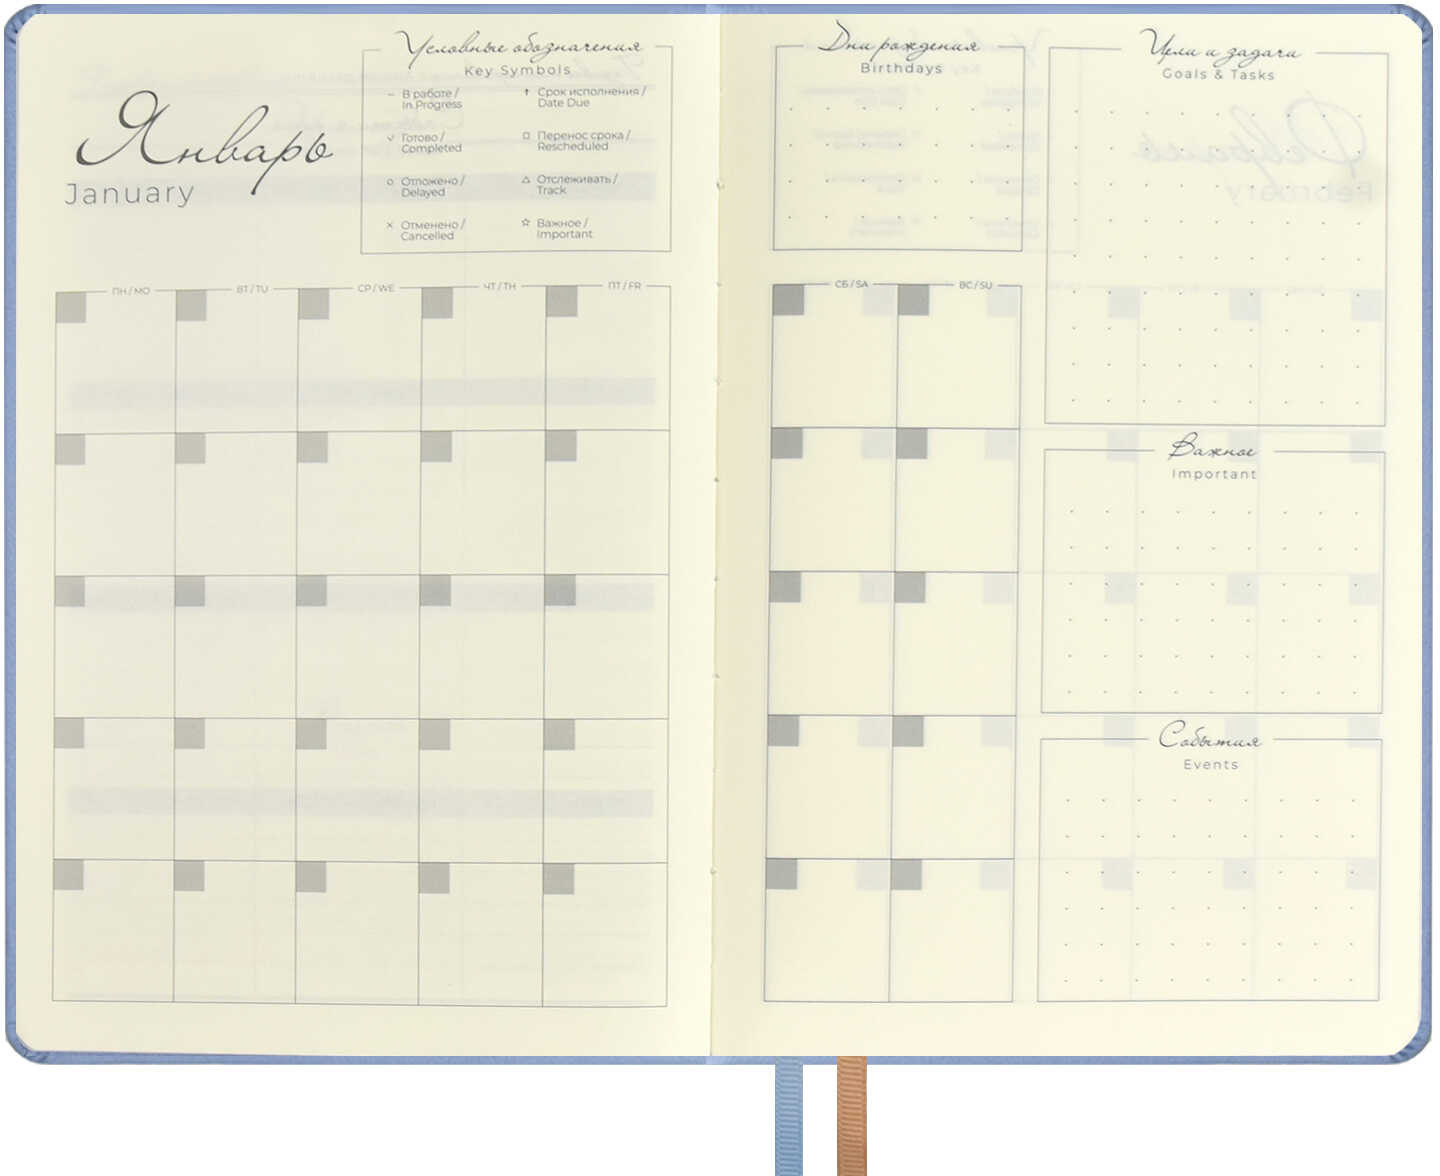 Январь
January
Условные обозначения
Key Symbols
– В работе /
In Progress
↑ Срок исполнения /
Date Due
✓ Готово /
Completed
□ Перенос срока /
Rescheduled
○ Отложено /
Delayed
△ Отслеживать /
Track
× Отменено /
Cancelled
☆ Важное /
Important
ПН / MO
ВТ / TU
СР / WE
ЧТ / TH
ПТ / FR
Дни рождения
Birthdays
СБ / SA
ВС / SU
Цели и задачи
Goals & Tasks
Важное
Important
События
Events
Февраль
February